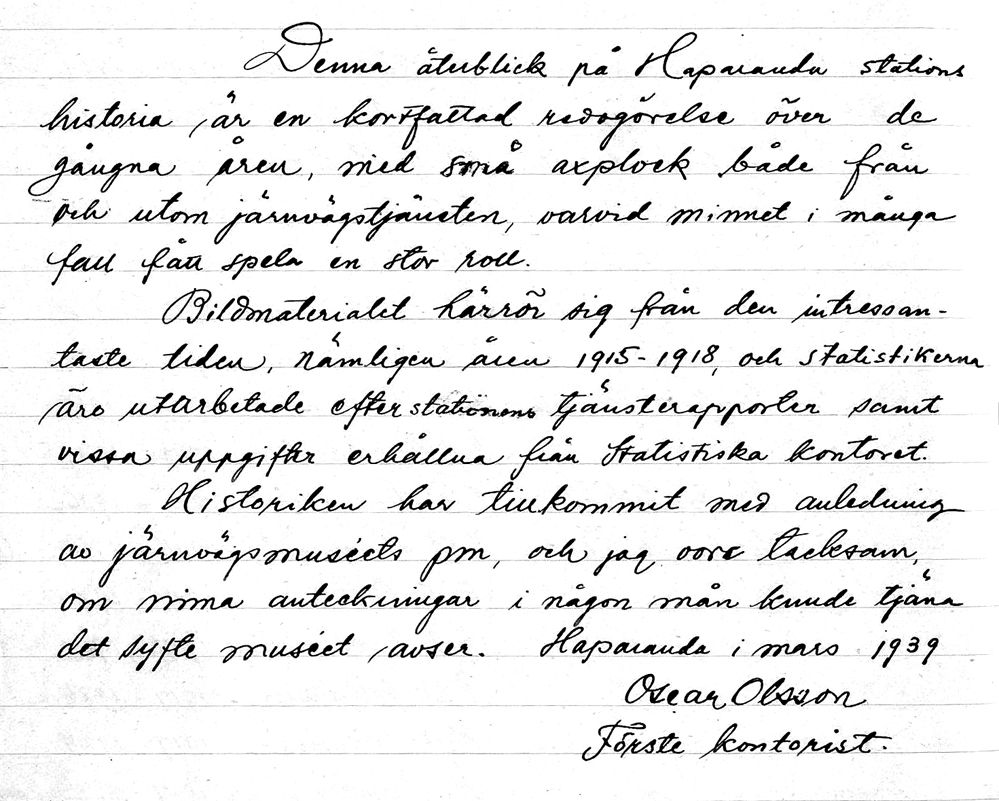 Denna återblick på Haparanda stations
historia är en kortfattad redogörelse över de
gångna åren, med små axplock både från
och utom järnvägstjänsten, varvid minnet i många
fall fått spela en stor roll.
Bildmaterialet härrör sig från den intressan-
taste tiden, nämligen åren 1915-1918, och statistikerna
äro utarbetade efter stationens tjänsterapporter samt
vissa uppgifter erhållna från Statistiska kontoret.
Historiken har tillkommit med anledning
av järnvägsmuséets pm, och jag vore tacksam,
om mina anteckningar i någon mån kunde tjäna
det syfte muséet avser. Haparanda i mars 1939
Oscar Olsson
Förste kontorist.